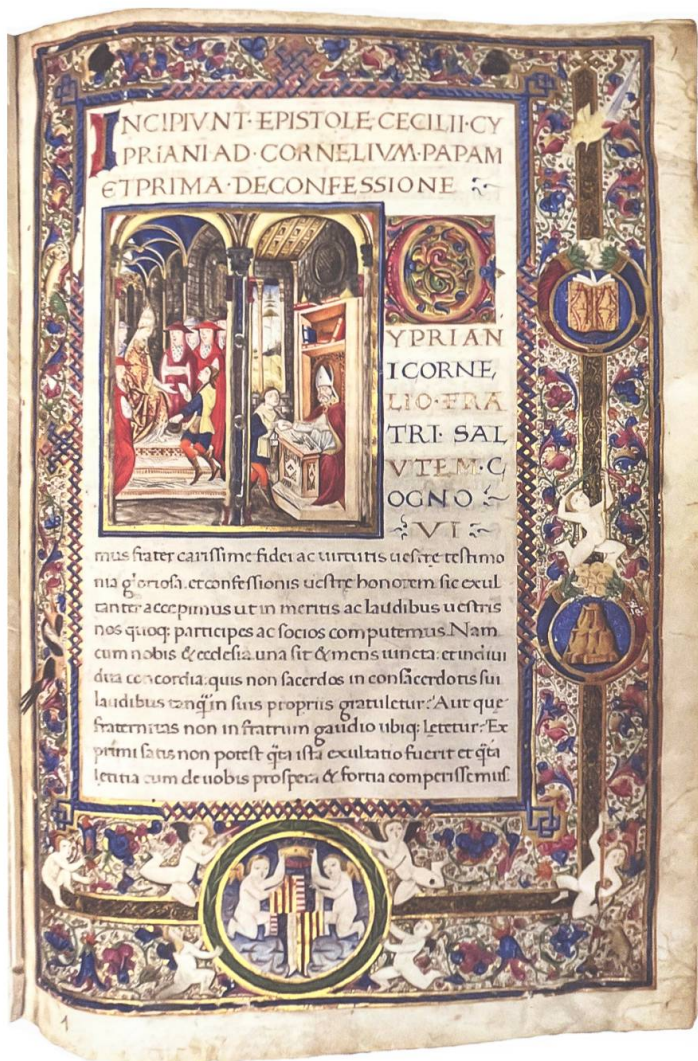 INCIPIVNT·EPISTOLE·CECILII·CY
PRIANI AD·CORNELIVM·PAPAM
ET PRIMA·DE CONFESSIONE
CYPRIAN
I CORNE,
LIO·FRA
TRI·SAL
VTEM·C,
OGNO
VI
mus frater carissime fidei ac uirtutis uestre testimo
nia gloriosa. et confessionis uestrę honorem sic exul
tanter accepimus ut in meritis ac laudibus uestris
nos quoq; participes ac socios computemus. Nam
cum nobis & ecclesia una sit & mens iuncta: et indiui
dua concordia: quis non sacerdos in consacerdotis sui
laudibus tanq̃ in suis propriis gratuletur? Aut que
fraternitas non in fratrum gaudio ubiq; letetur? Ex
primi satis non potest q̃ta ista exultatio fuerit et q̃ta
letitia cum de uobis prospera & fortia comperissemus.
1